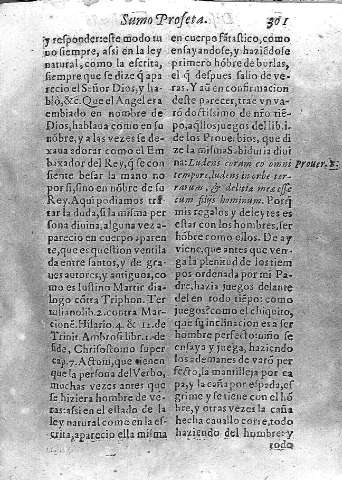 Sumo Profeta. 301
y responder: este modo tu
uo siempre, assi en la ley
natural, como la escrita,
siempre que se dize q̃ apa
recio el Señor Dios, y ha-
blò, &c. Que el Angel era
embiado en nombre de
Dios, hablaua como en su
nōbre, y a las vezes se de-
xaua adorar como el Em
baxador del Rey, q̃ se con
siente besar la mano no
por si, sino en nōbre de su
Rey. Aqui podiamos tra
tar la duda, si la misma per
sona diuina, alguna vez a-
parecio en cuerpo aparen
te, que es question ventila
da entre santos, y de gra-
ues autores, y antiguos, co
mo es Iustino Martir dia-
logo cōtra Triphon. Ter
tuliano lib. 2. contra Mar-
cionē. Hilario. 4. & 12. de
Trinit. Ambrosi libr. 1. de
fide, Chrisostomo super
cap. 7. Actom, que tienen
que la persona del Verbo,
muchas vezes antes que
se hiziera hombre de ve-
ras: assi en el estado de la
ley natural como en la es-
crita, aparecio ella misma
en cuerpo fātastico, como
ensayandose, y haziēdose
primero hōbre de burlas,
el q̃ despues salio de ve-
ras. Y aū en confirmacion
deste parecer, trae vn va-
rō doctissimo de nr̄o tiē-
po, aq̄llos juegos del lib. i.
de los Prouerbios, que di
ze la misma Sabiduria diui
na: Ludens coram eo omni
tempore, ludens in orbe ter-
rarum, & delitiæ meæ esse
cum filijs hominum. Porq̃
mis regalos y deleytes es
estar con los hombres, ser
hōbre como ellos. De ay
viene, que antes que ven-
ga la plenitud de los tiem
pos ordenada por mi Pa-
dre, hazia juegos delante
del en todo tiēpo: como
juegos? como el chiquito,
que su inclinacion es a ser
hombre perfeto: niño se
ensaya y juega, haziendo
los ademanes de varō per
fecto, la mantilleja por ca
pa, y la caña por espada, es
grime y se tiene con el hō
bre, y otras vezes la caña
hecha cauallo corre, todo
haziendo del hombre: y
todo
Prouer. 8.